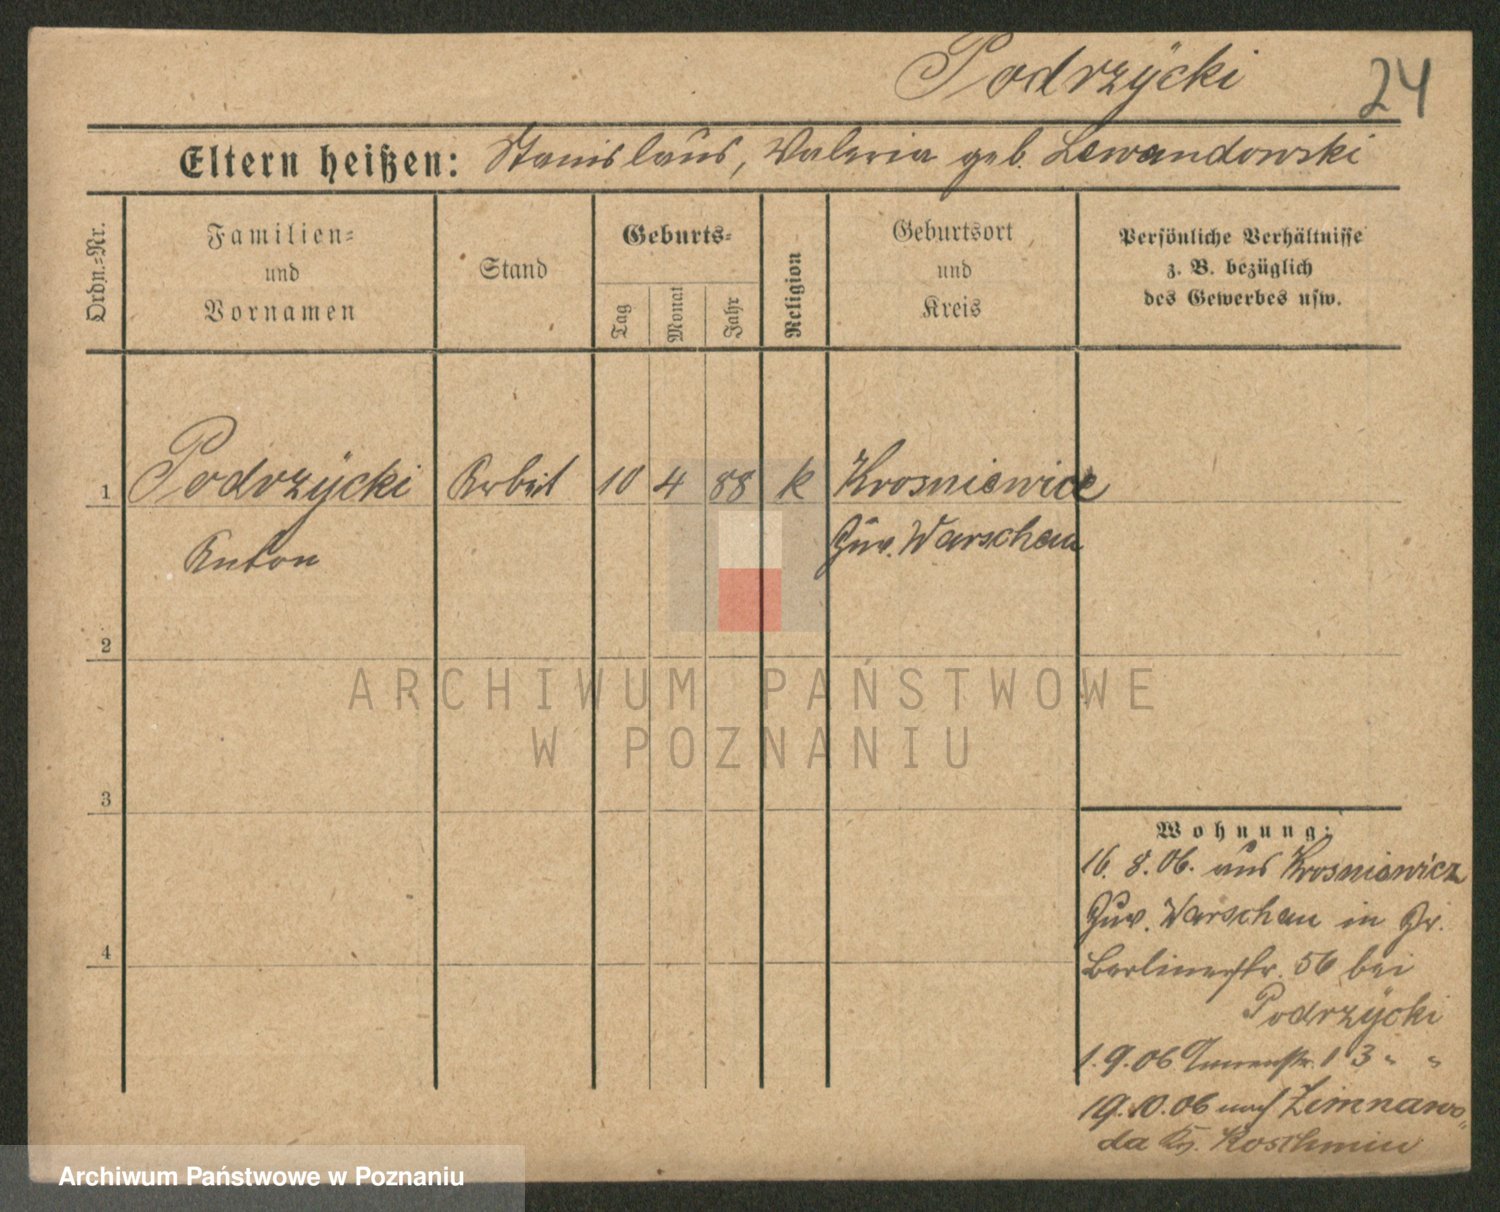 Podrzÿcki
24
Eltern heißen: Stanislaus, Valeria geb. Lewandowski
Ordn.-Nr.
Familien-
und
Vornamen
Stand
Geburts-
Tag
Monat
Jahr
Religion
Geburtsort
und
Kreis
Persönliche Verhältnisse
z. B. bezüglich
des Gewerbes usw.
1 Podrzÿcki Arbeit 10 4 88 k Krosniewice
Anton Guv. Warschau
2
ARCHIWUM PAŃSTWOWE
W POZNANIU
3
Wohnung:
16. 8. 06. aus Krosniewicz
Guv. Warschau in
4
Berlinerstr. 56 bei
Podrzÿcki
1. 9. 06 13 " "
19. 10. 06 nach Zimnawo-
da Kr. Koschmin
Archiwum Państwowe w Poznaniu